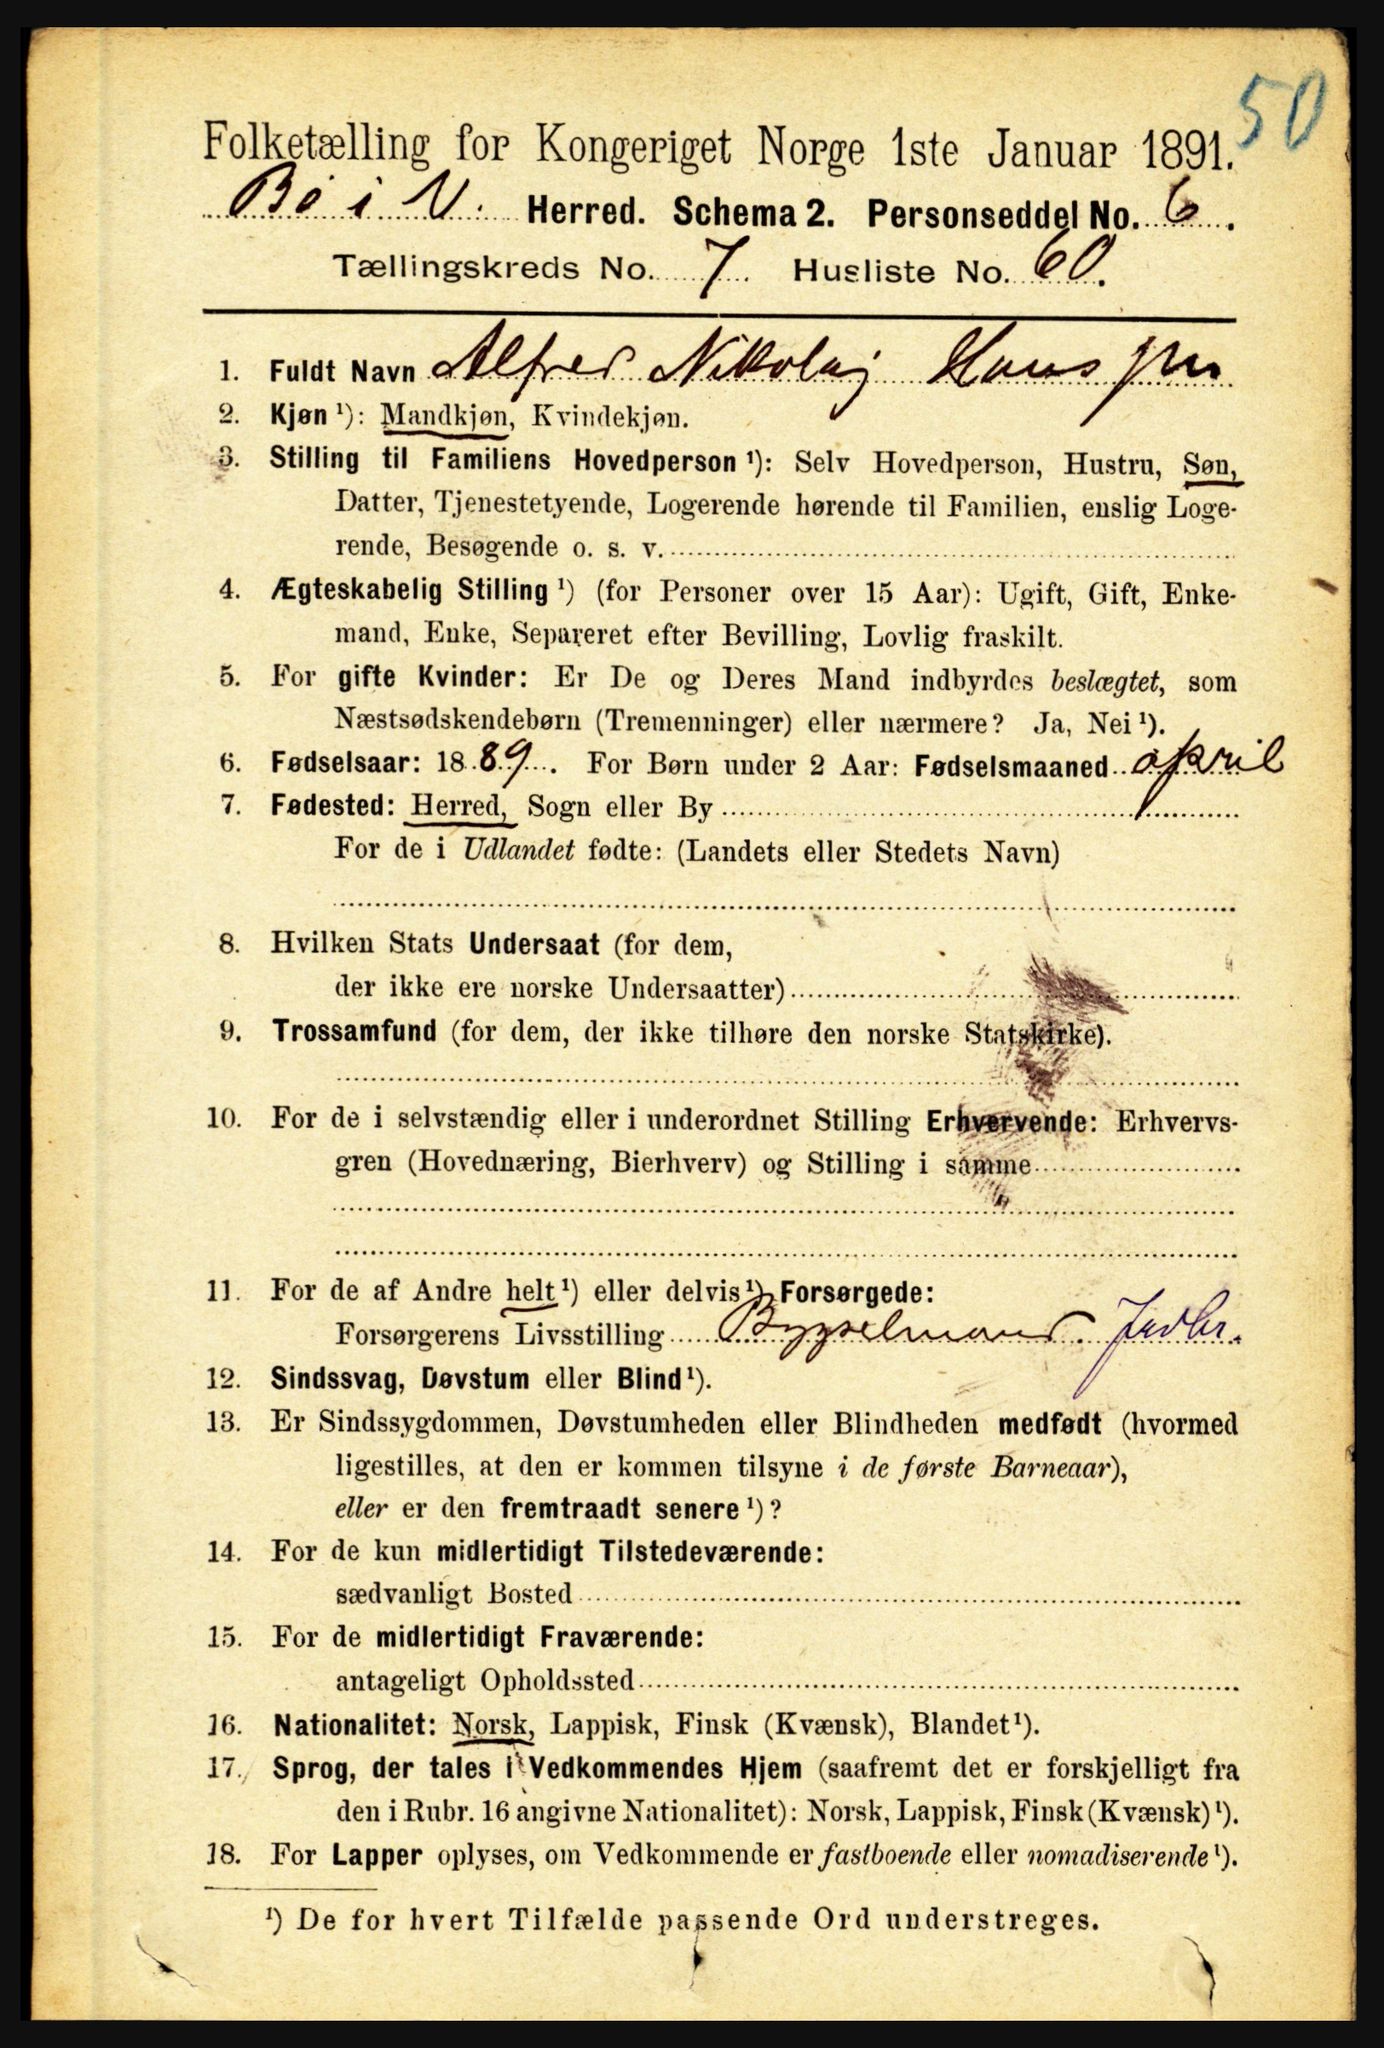 50
Folketælling for Kongeriget Norge 1ste Januar 1891.
Bø i V. Herred. Schema 2. Personseddel No. 6.
Tællingskreds No. 7 Husliste No. 60.
1. Fuldt Navn Alfred Nikolaj Hansen
2. Kjøn ¹): Mandkjøn, Kvindekjøn.
3. Stilling til Familiens Hovedperson ¹): Selv Hovedperson, Hustru, Søn,
Datter, Tjenestetyende, Logerende hørende til Familien, enslig Loge-
rende, Besøgende o. s. v.
4. Ægteskabelig Stilling ¹) (for Personer over 15 Aar): Ugift, Gift, Enke-
mand, Enke, Separeret efter Bevilling, Lovlig fraskilt.
5. For gifte Kvinder: Er De og Deres Mand indbyrdes beslægtet, som
Næstsødskendebørn (Tremenninger) eller nærmere? Ja, Nei ¹).
6. Fødselsaar: 1889. For Børn under 2 Aar: Fødselsmaaned april
7. Fødested: Herred, Sogn eller By
For de i Udlandet fødte: (Landets eller Stedets Navn)
8. Hvilken Stats Undersaat (for dem,
der ikke ere norske Undersaatter)
9. Trossamfund (for dem, der ikke tilhøre den norske Statskirke).
10. For de i selvstændig eller i underordnet Stilling Erhvervende: Erhvervs-
gren (Hovednæring, Bierhverv) og Stilling i samme
11. For de af Andre helt ¹) eller delvis ¹) Forsørgede:
Forsørgerens Livsstilling Bygselmand. Jordbr.
12. Sindssvag, Døvstum eller Blind ¹).
13. Er Sindssygdommen, Døvstumheden eller Blindheden medfødt (hvormed
ligestilles, at den er kommen tilsyne i de første Barneaar),
eller er den fremtraadt senere ¹)?
14. For de kun midlertidigt Tilstedeværende:
sædvanligt Bosted
15. For de midlertidigt Fraværende:
antageligt Opholdssted
16. Nationalitet: Norsk, Lappisk, Finsk (Kvænsk), Blandet ¹).
17. Sprog, der tales i Vedkommendes Hjem (saafremt det er forskjelligt fra
den i Rubr. 16 angivne Nationalitet): Norsk, Lappisk, Finsk (Kvænsk) ¹).
18. For Lapper oplyses, om Vedkommende er fastboende eller nomadiserende ¹).
¹) De for hvert Tilfælde passende Ord understreges.